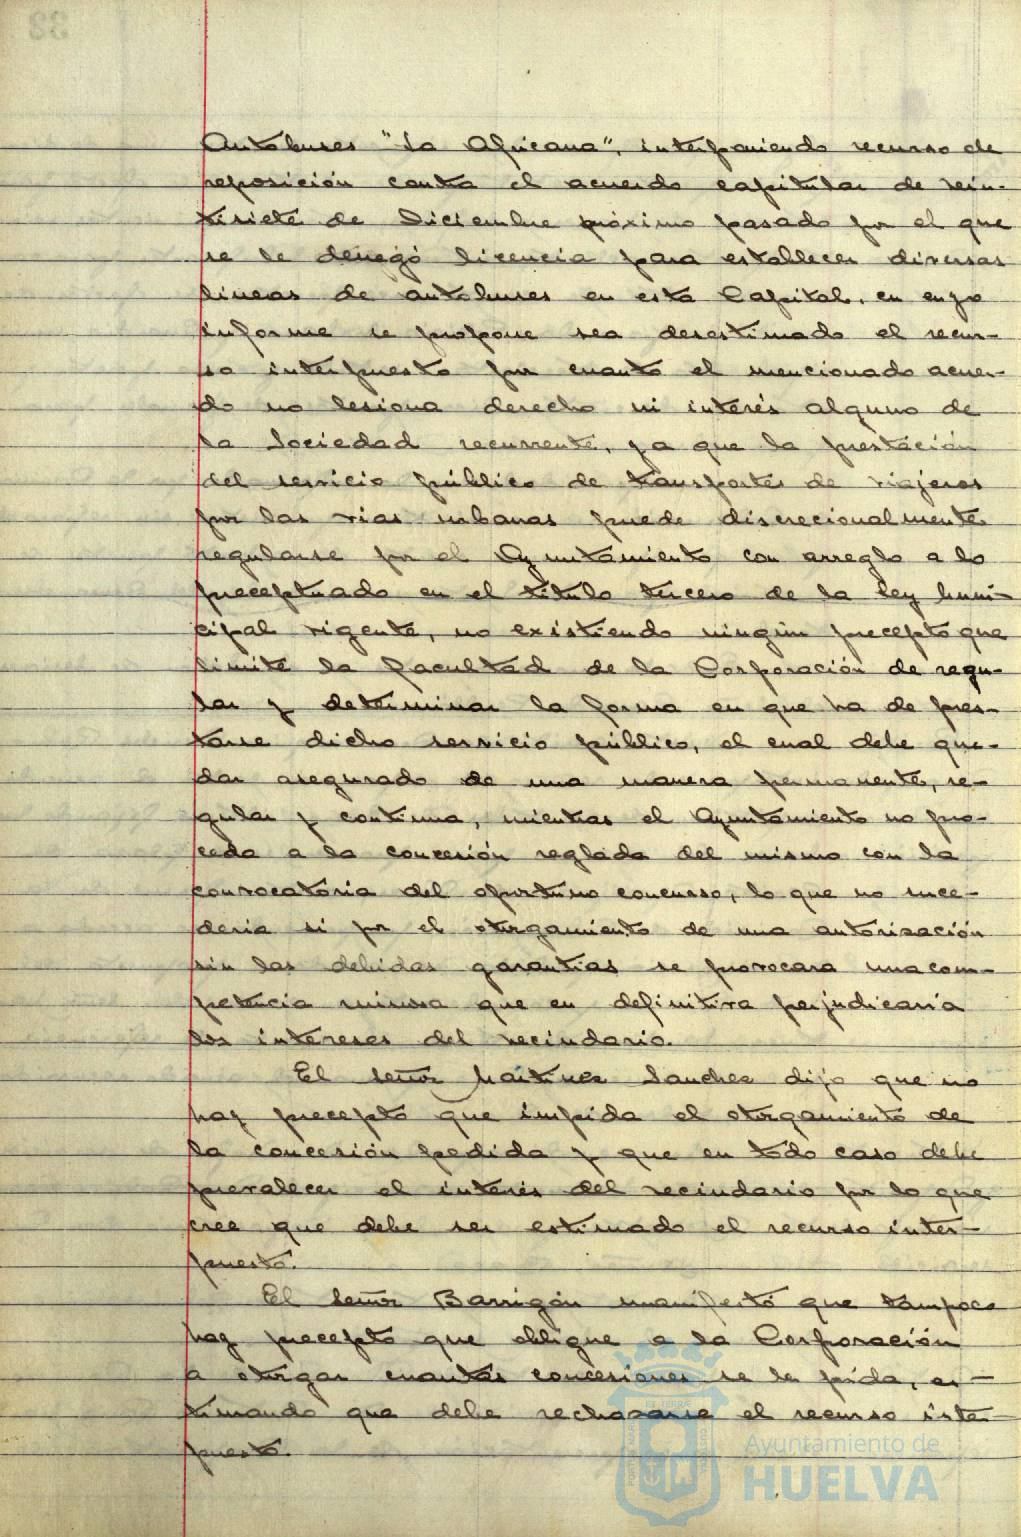 Autobuses "La Africana", interponiendo recurso de
reposición contra el acuerdo capitular de vein-
tisiete de Diciembre próximo pasado por el que
se le denegó licencia para establecer diversas
lineas de autobuses en esta Capital, en cuyo
informe se propone sea desestimado el recur-
so interpuesto por cuanto el mencionado acuer-
do no lesiona derecho ni interés alguno de
la Sociedad recurrente, ya que la prestación
del servicio público de transportes de viajeros
por las vias urbanas puede discrecionalmente
regularse por el Ayuntamiento con arreglo a lo
preceptuado en el título tercero de la Ley Muni-
cipal vigente, no existiendo ningún precepto que
limite la facultad de la Corporación de regu-
lar y determinar la forma en que ha de pres-
tarse dicho servicio público, el cual debe que-
dar asegurado de una manera permanente, re-
gular y continua, mientras el Ayuntamiento no pro-
ceda a la concesión reglada del mismo con la
convocatoria del oportuno concurso, lo que no suce-
deria si por el otorgamiento de una autorización
sin las debidas garantias se provocara una com-
petencia ruinosa que en definitiva perjudicaria
los intereses del vecindario.
El señor Martinez Sanchez dijo que no
hay precepto que impida el otorgamiento de
la concesión pedida y que en todo caso debe
prevalecer el interés del vecindario por lo que
cree que debe ser estimado el recurso inter-
puesto.
El señor Barrigón manifestó que tampoco
hay precepto que obligue a la Corporación
a otorgar cuantas concesiones se le pida, es-
timando que debe rechazarse el recurso inter-
puesto.
Ayuntamiento de
HUELVA